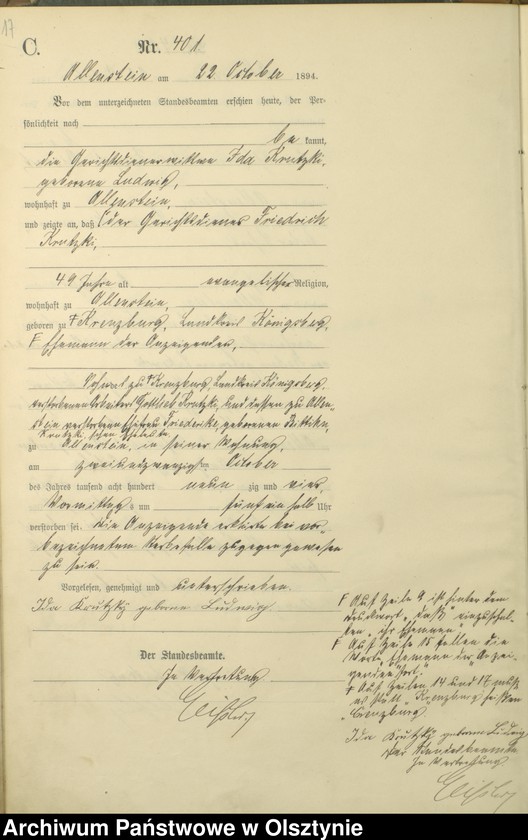 17
C.
Nr. 401
Allenstein am 22 October 1894.
Vor dem unterzeichneten Standesbeamten erschien heute, der Per-
sönlichkeit nach
be kannt,
die Gerichtsdienerwittwe Ida Krutzki,
geborene Ludwig,
wohnhaft zu Allenstein,
und zeigte an, daß der Gerichtsdiener Friedrich
Krutzki,
49 Jahre alt evangelischer Religion,
wohnhaft zu Allenstein,
geboren zu Krenzburg, Landkreis Königsberg,
Ehemann der Anzeigenden,
Sohn zu Krenzburg, Landkreis Königsberg,
verstorbenen Arbeiter Gottlieb Krutzki, und dessen zu Allen-
stein verstorbenen Ehefrau Friederike, geborenen
Krutzki'schen Eheleute
zu Allenstein, in seiner Wohnung,
am zweiundzwanzigsten October
des Jahres tausend acht hundert neun zig und vier,
Vormittags um fünf ein halb Uhr
verstorben sei. Die Anzeigende erklärte bei vor-
bezeichnetem Sterbefalle zugegen gewesen
zu sein.
Vorgelesen, genehmigt und unterschrieben.
Ida Krutzky geborene Ludwig
Der Standesbeamte.
In Vertretung
Auf Zeile 9 ist hinter dem
Wort "daß" einzuschal-
ten "ihr Ehemann"
Auf Zeile 15 fallen die
Worte "Ehemann der Anzei-
genden" fort.
Auf Zeilen 14 und 17 muß
es statt "Krenzburg" heißen
"Creuzburg".
Ida Krutzky geborene Ludwig
Der Standesbeamte
In Vertretung
Archiwum Państwowe w Olsztynie